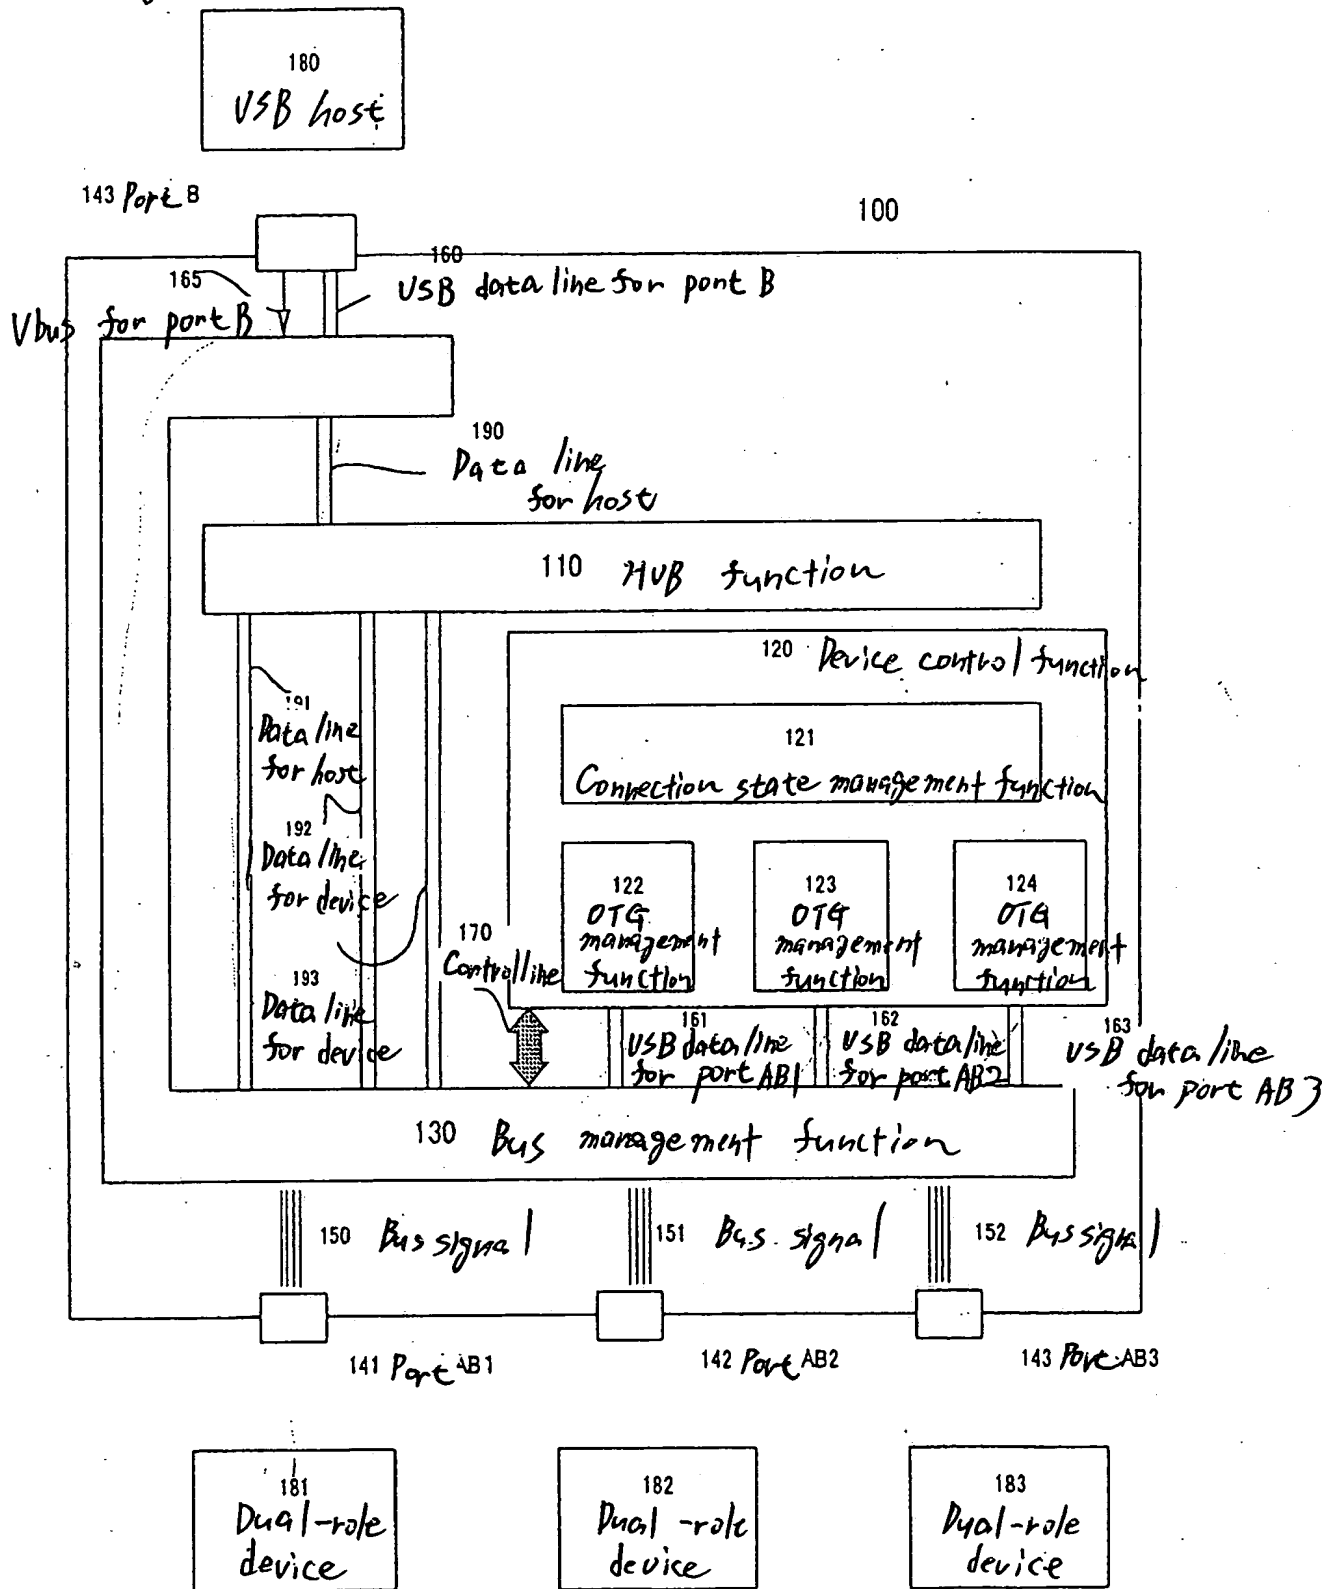 180
USB host
143 Port B
100
160
USB data line for port B
165
Vbus for port B
190
Data line
for host
110 HUB function
120 Device control function
191
Data line
for host
121
Connection state management function
192
Data line
for device
122
OTG
management
function
123
OTG
management
function
124
OTG
management
function
170
Control line
193
Data line
for device
161
USB data line
for port AB1
162
USB data line
for port AB2
163
USB data line
for port AB3
130 Bus management function
150 Bus signal
151 Bus signal
152 Bus signal
141 Port AB1
142 Port AB2
143 Port AB3
181
Dual-role
device
182
Dual-role
device
183
Dual-role
device